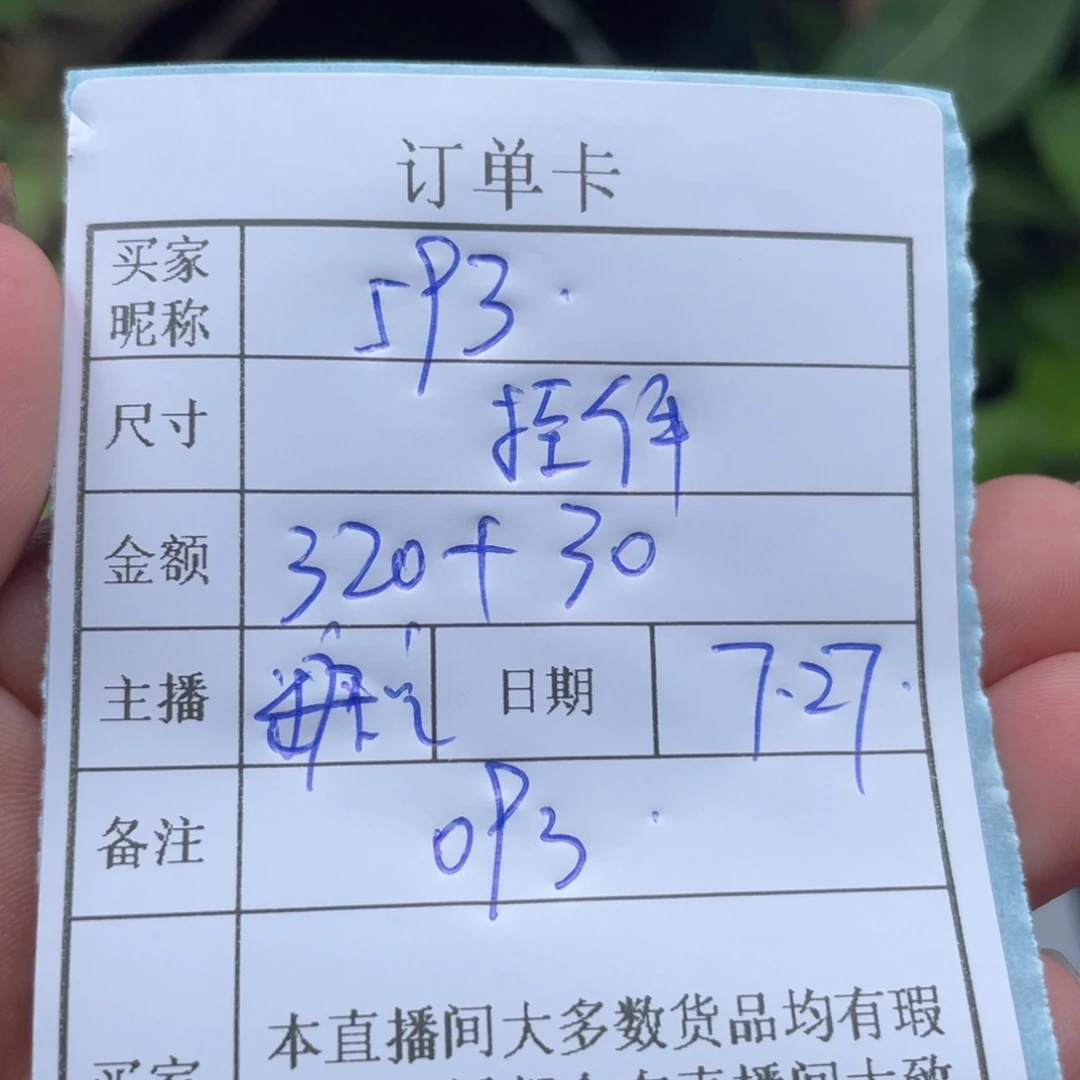 订单卡
买家昵称 593.
尺寸 挂件
金额 320+30
主播 日期 7.27.
备注 093.
买家
本直播间大多数货品均有瑕
直播间大致